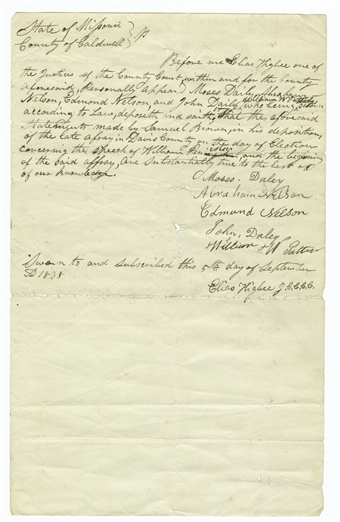 State of Missouri
County of Caldwell
Before me Elias Higbee one of
the Justices of the County Court, within and for the County
aforesaid, Personally Appeard Moses Daily, Abraham
Nelson, Edmond Nelson, and John Daily, who being
according to Law, deposeth and saith, that the aforesaid
Statements made by Samuel Brown in his deposition,
of the late affray in Davis County, on the day of Election
concerning the speech of William and the beginning
of the said affray, are Substantially true to the best of
of our knowledge.
Moses Daley
Edmund Nelson
John, Daley
Sworn to and subscribed this 5th day of September
AD 1838
Elias Higbee J.C.C.C.